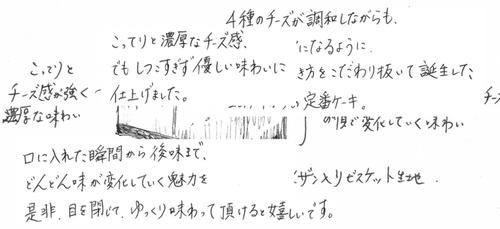 4種のチーズが調和しながらも、
こってりと濃厚なチーズ感、
でもしつこすぎず優しい味わいに
仕上げました。
になるように、
き方をこだわり抜いて誕生した
定番ケーキ。
こってりと
チーズ感が強く
濃厚な味わい
で変化していく味わい
チーズ
口に入れた瞬間から後味まで、
どんどん味が変化していく魅力を
是非、目を閉じて、ゆっくり味わって頂けると嬉しいです。
ビスケット生地